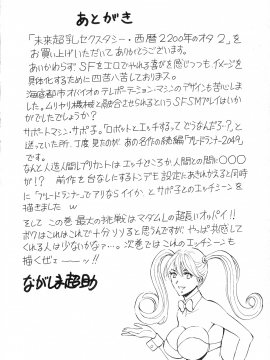 あとがき
「未来超乳セクスタシー・西暦2200年のオタ2」を
お買い上げいただいてありがとうございます。
あいかわらずSFをエロでやれる喜びを感じつつもイメージを
具体化するために四苦八苦しております。
海底都市オバイオのテレポーテーションマシンのデザインも苦心しま
した。ムリヤリ機械と融合させられるというSFSMプレイはいか
がでしたでしょうか?
サポートマシン・サポ子。「ロボットとエッチするって どうなんだろ〜?」と
迷っていた所、丁度見たのが、あの名作の続編「ブレードランナー2049」。
なんと人造人間レプリカントはエッチどころか人間との間に○○○
が!? 前作を台なしにするトンデモ設定にあきれかえると同時
に「ブレードランナーでアリならイイか」とサポ子とのエッチシーンを
描きました w
そして この巻・最大の挑戦はマダムLの超長いオッパイ!!
ボクはこれはこれで十分ソソると思うんですが、やっぱ共感して
くれる人は少ないかな?…。次巻ではこれのエッチシーンも
描くぜェーーーッ!!
ながしま超助